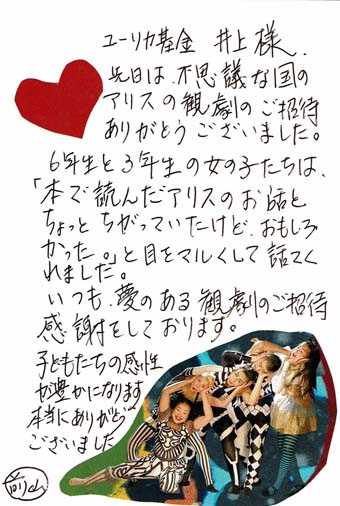 ユーリカ基金 井上様、
先日は、不思議な国の
アリスの観劇のご招待
ありがとうございました。
6年生と3年生の女の子たちは、
「本で読んだアリスのお話と
ちょっとちがっていたけど、おもしろ
かった。」と目をマルくして話てく
れました。
いつも、夢のある観劇のご招待
感謝をしております。
子どもたちの感性
が豊かになります
本当にありがとう
ございました